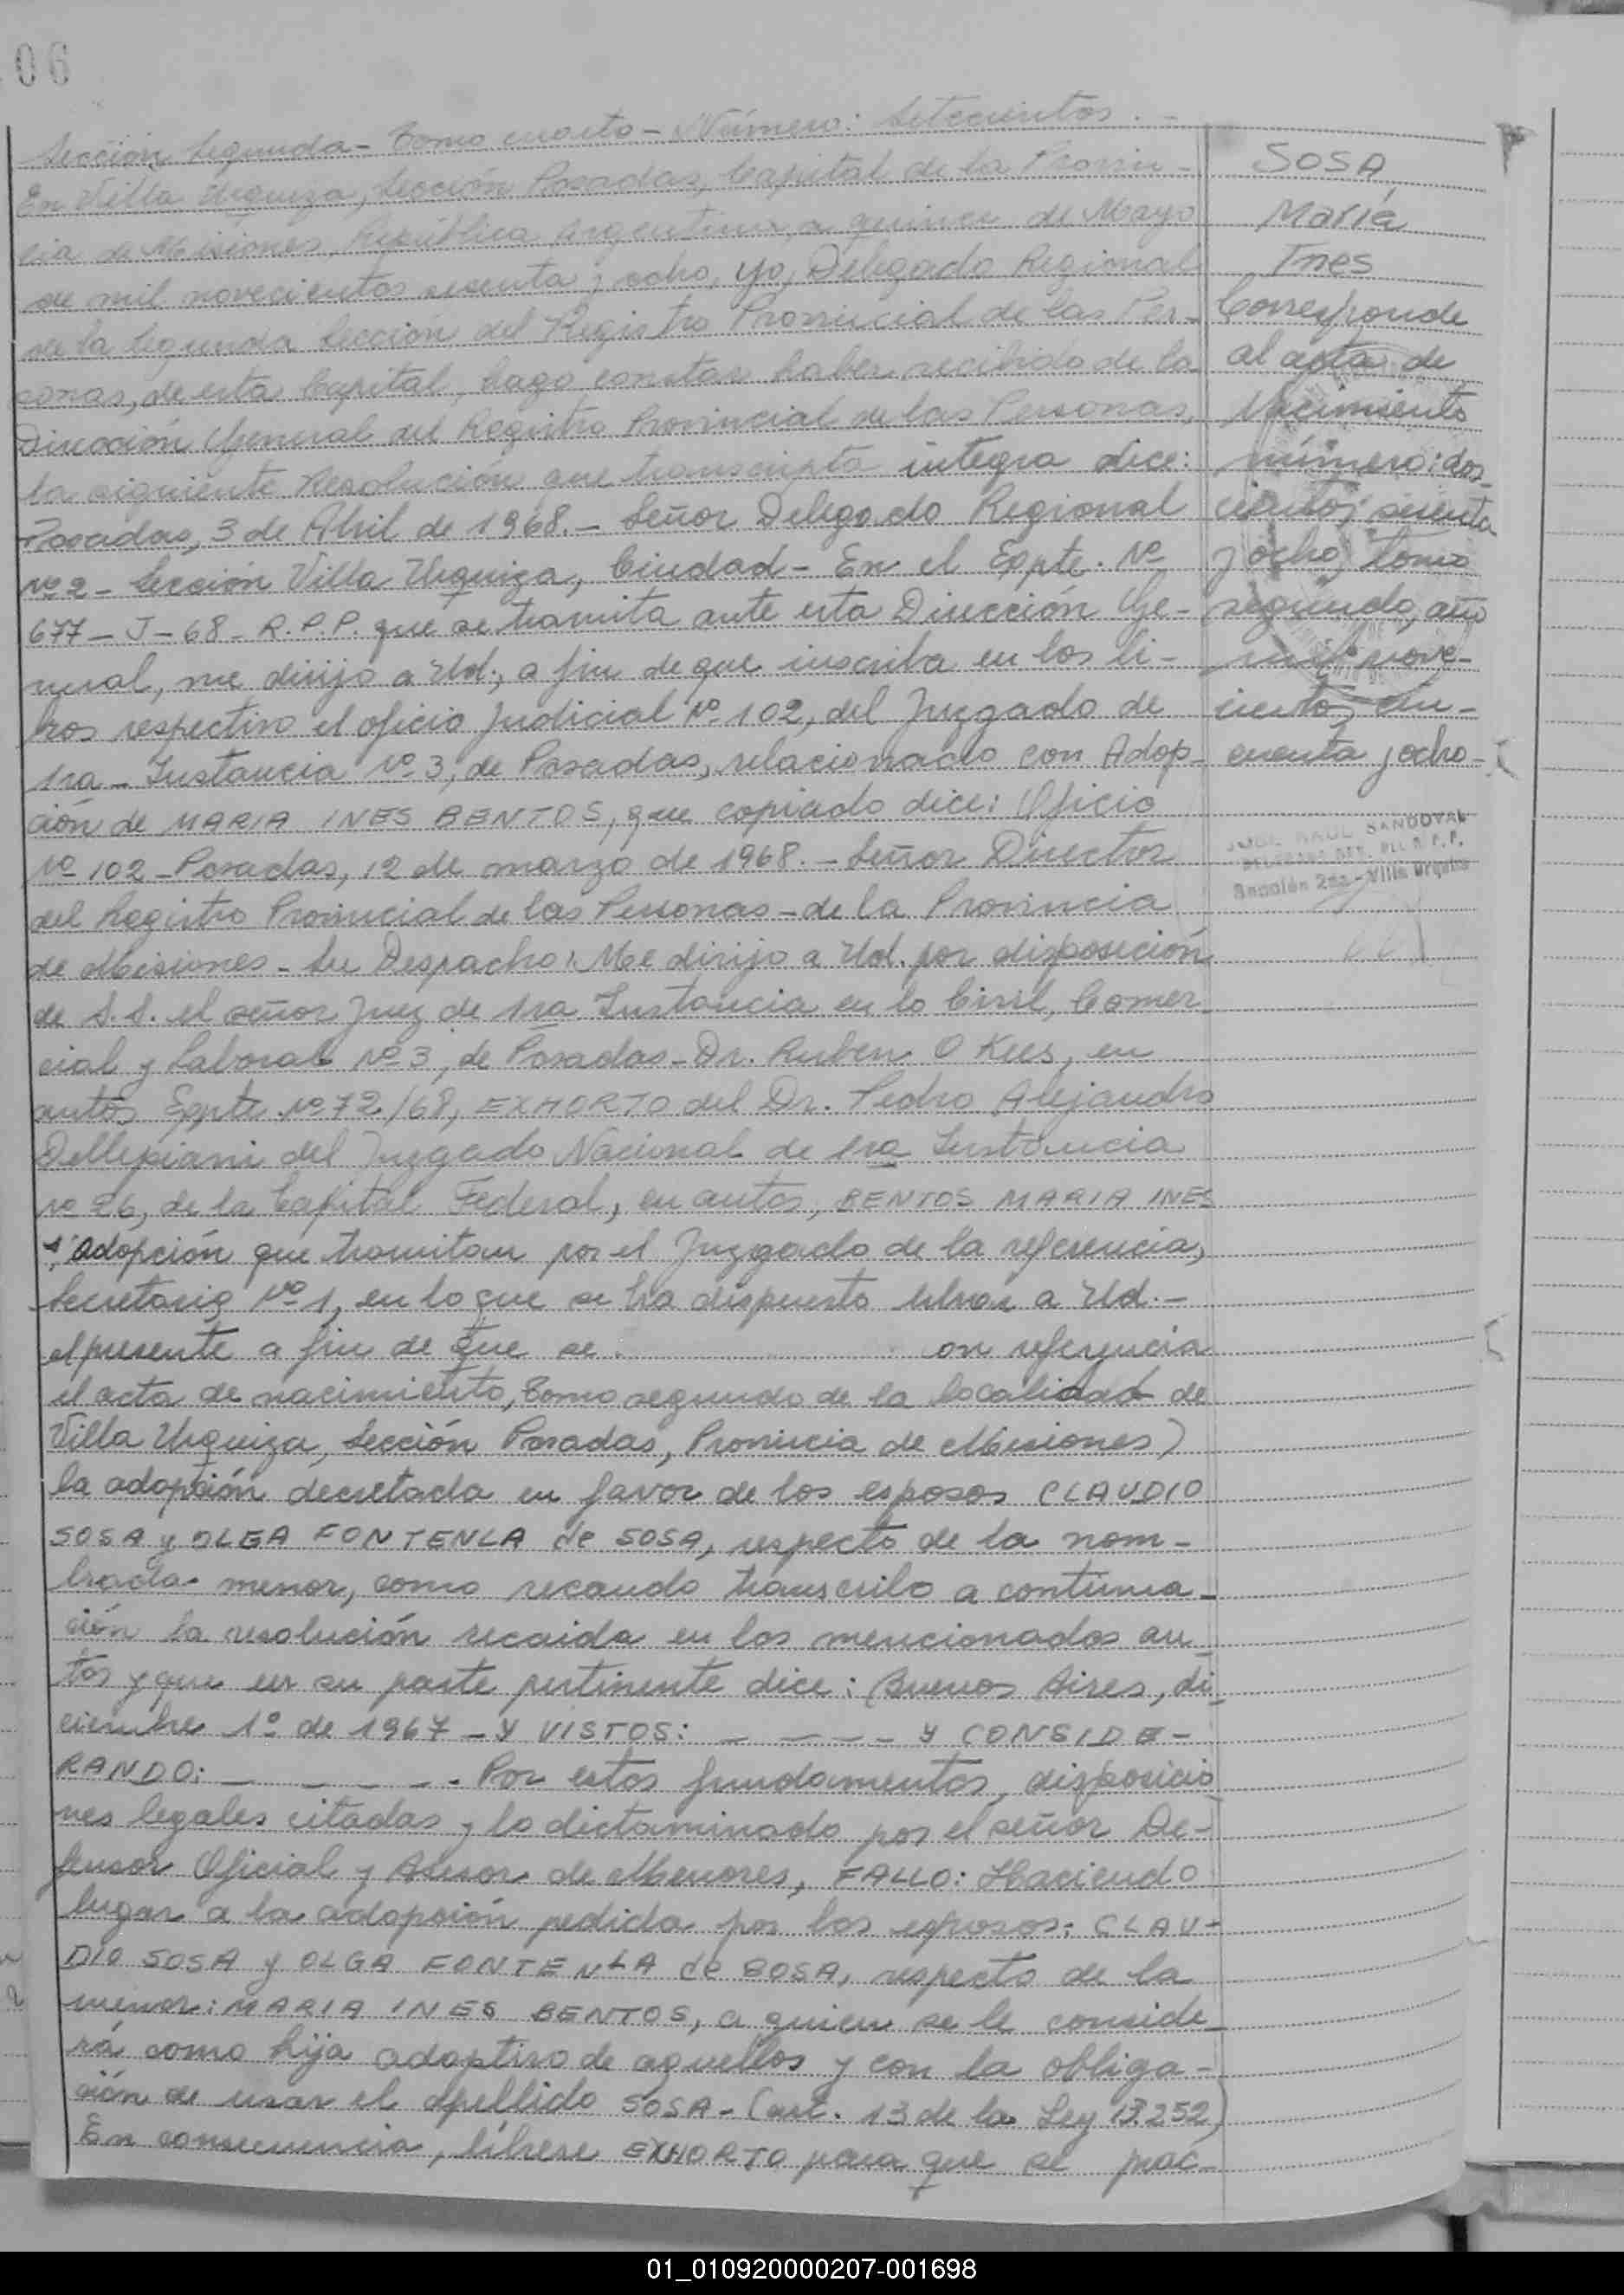 06
Sección Segunda - Tomo cuarto - Número: Setecientos. -
En Villa Urquiza, Sección Posadas, Capital de la Provin-
cia de Misiones, República Argentina, a quince de Mayo
de mil novecientos sesenta y ocho, yo, Delegado Regional
de la Segunda Sección del Registro Provincial de las Per-
sonas, de esta Capital, hago constar haber recibido de la
Dirección General del Registro Provincial de las Personas,
la siguiente Resolución que transcripta integra dice:
Posadas, 3 de Abril de 1968. - Señor Delegado Regional
Nº 2 - Sección Villa Urquiza, Ciudad - En el Expte. Nº
677 - J - 68 - R.P.P. que se tramita ante esta Dirección Ge-
neral, me dirijo a Ud., a fin de que inscriba en los li-
bros respectivo el oficio Judicial Nº 102, del Juzgado de
1ra - Instancia Nº 3, de Posadas, relacionado con Adop-
ción de MARIA INES BENTOS, que copiado dice: Oficio
Nº 102 - Posadas, 12 de marzo de 1968. - Señor Director
del Registro Provincial de las Personas - de la Provincia
de Misiones - Su Despacho: Me dirijo a Ud. por disposición
de S.S. el señor Juez de 1ra Instancia en lo Civil, Comer
cial y Laboral Nº 3, de Posadas - Dr. Ruben O Kees, en
autos Expte. Nº 72/68, EXHORTO del Dr. Pedro Alejandro
Dellepiani del Juzgado Nacional de 1ra Instancia
Nº 26, de la Capital Federal, en autos, BENTOS MARIA INES
s/ adopción que tramitan por el Juzgado de la referencia,
Secretaria Nº 1, en lo que se ha dispuesto librar a Ud. -
el presente a fin de que se on referencia
el acta de nacimiento, Tomo segundo de la localidad de
Villa Urquiza, Sección Posadas, Provincia de Misiones)
la adopción decretada en favor de los esposos CLAUDIO
SOSA y OLGA FONTENLA de SOSA, respecto de la nom-
brada menor, como recaudo transcribo a continua-
ción la resolución recaida en los mencionados au
tos y que en su parte pertinente dice: (Buenos Aires, di
ciembre 1º de 1967 - Y VISTOS: - - - - Y CONSIDE-
RANDO: - - - - - . Por estos fundamentos, disposicio
nes legales citadas y lo dictaminado por el señor De-
fensor Oficial y Asesor de Menores, FALLO: Haciendo
lugar a la adopción pedida por los esposos: CLAU-
DIO SOSA y OLGA FONTENLA de SOSA, respecto de la
menor: MARIA INES BENTOS, a quien se le conside-
rá como hija adoptiva de aquellos y con la obliga-
ción de usar el apellido SOSA - (art. 13 de la Ley 13.252)
En consecuencia, líbrese EXHORTO para que se prac-
SOSA,
María
Ines
Corresponde
al acta de
Nacimiento
número: dos-
cientos sesenta
y ocho, Tomo
segundo, año
mil nove-
cientos cin-
cuenta y ocho -
RAUL SANDOVAL
Sección 2da - Villa Urquiza
01_010920000207-001698